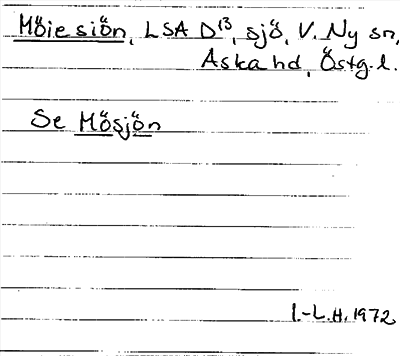 Möie siön, LSA D13, sjö, V. Ny sn,
Aska hd, Östg.l.
Se Mösjön
I.-L.H. 1972